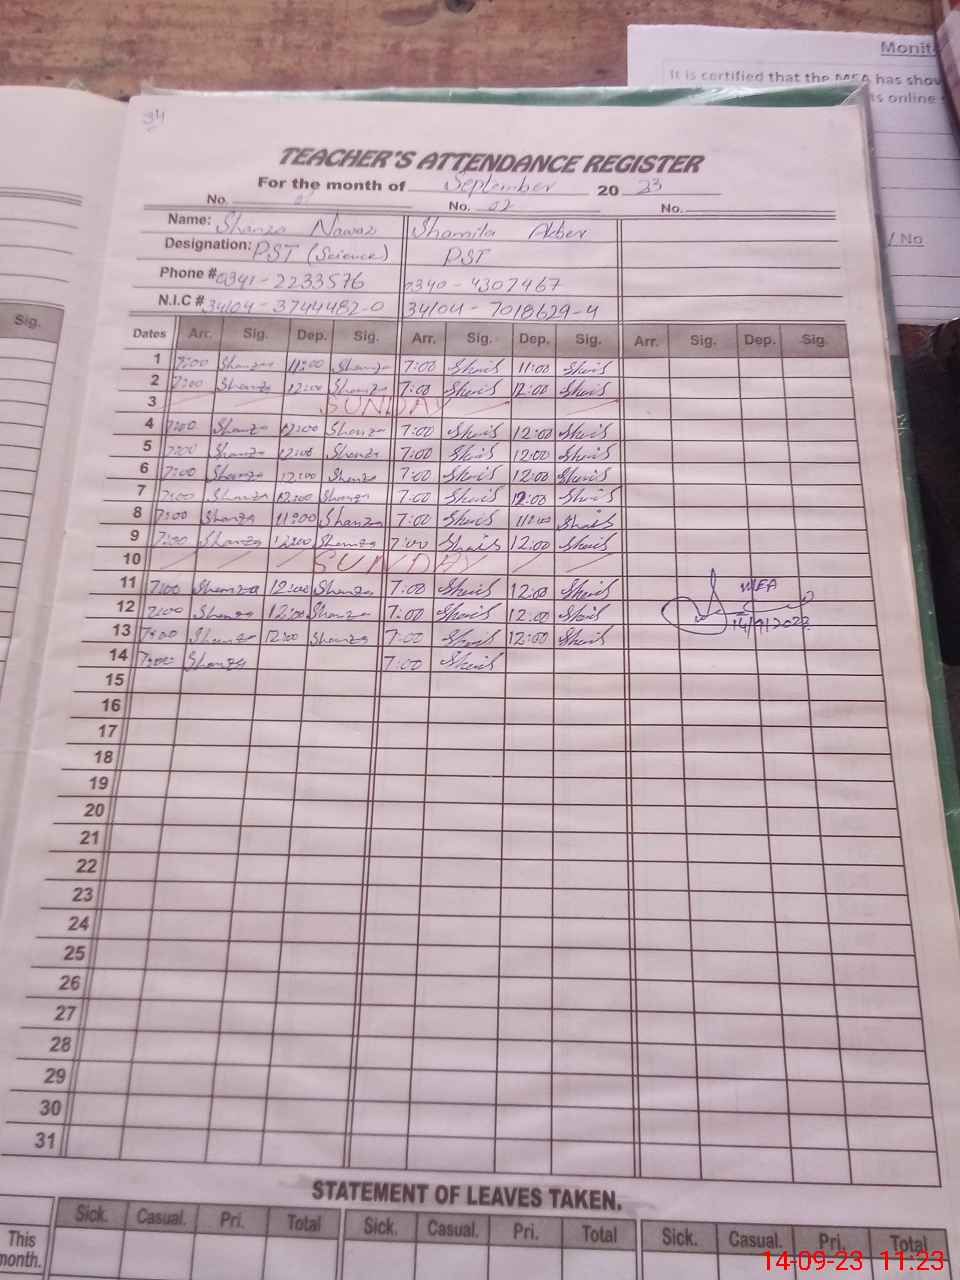 34
Monit
It is certified that the MEA has shov
ts online
/ No
Sig.
TEACHER'S ATTENDANCE REGISTER
For the month of September 20 23
No. 01 No. 02 No.
Name: Shanza Nawaz Shamila Akber
Designation: PST (Science) PST
Phone # 0341-2233576 0340-4307467
N.I.C # 34104-3744482-0 34104-7018629-4
Dates Arr. Sig. Dep. Sig. Arr. Sig. Dep. Sig. Arr. Sig. Dep. Sig.
1 7:00 Shanza 11:00 Shanza 7:00 11:00
2 7:00 Shanza 12:00 Shanza 7:00 12:00
3 SUNDAY
4 7:00 Shanza 12:00 Shanza 7:00 12:00
5 7:00 Shanza 12:00 Shanza 7:00 12:00
6 7:00 Shanza 12:00 Shanza 7:00 12:00
7 7:00 Shanza 12:00 Shanza 7:00 12:00
8 7:00 Shanza 11:00 Shanza 7:00 11:00
9 7:00 Shanza 12:00 Shanza 7:00 12:00
10 SUNDAY
11 7:00 Shanza 12:00 Shanza 7:00 12:00 MEA
12 7:00 Shanza 12:00 Shanza 7:00 12:00 14/9/2023
13 7:00 Shanza 12:00 Shanza 7:00 12:00
14 7:00 Shanza 7:00
15
16
17
18
19
20
21
22
23
24
25
26
27
28
29
30
31
STATEMENT OF LEAVES TAKEN.
Sick. Casual. Pri. Total Sick. Casual. Pri. Total Sick. Casual. Pri. Total
This
month.
14-09-23 11:23